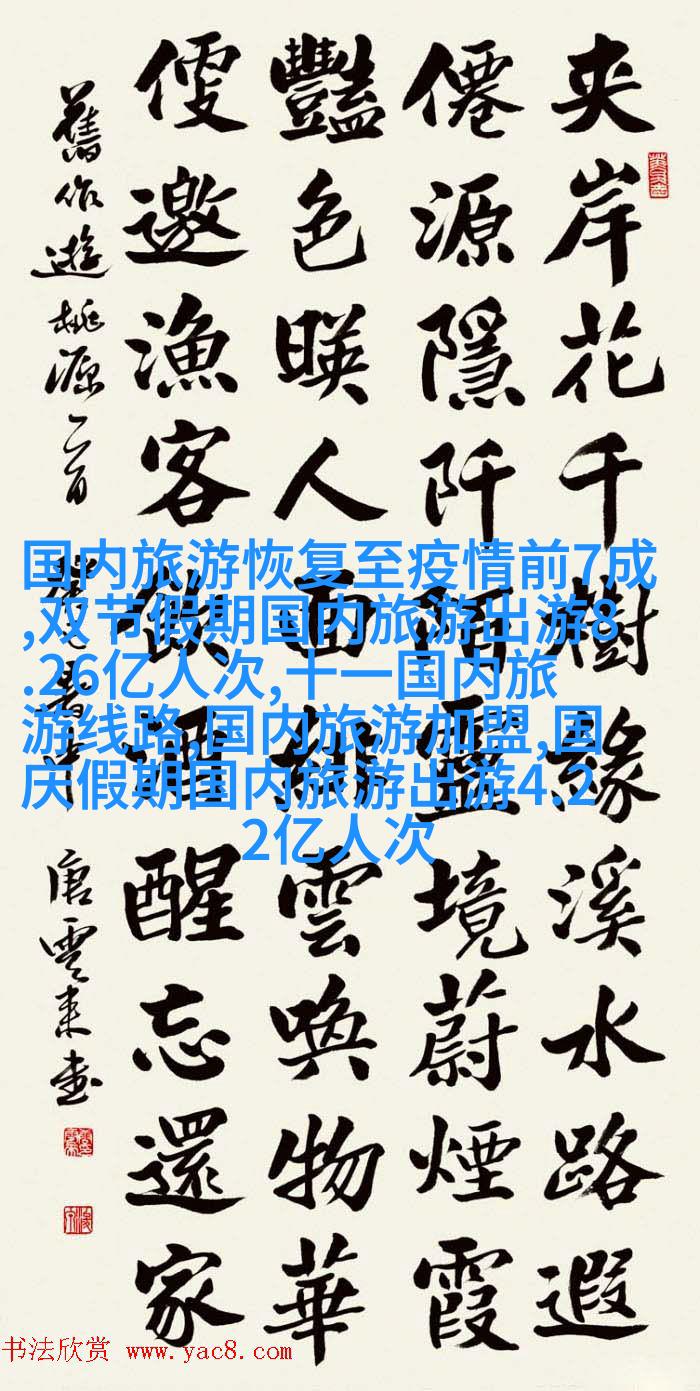 夹岸花千樹緣溪水路遐
僊源隱阡陌靈境蔚煙霞
豔色暎人面雲喚物華
便邀漁客飲酒醒忘還家
舊作遊桃源二首
唐雲来書
国内旅游恢复至疫情前7成
,双节假期国内旅游出游8
.26亿人次,十一国内旅
游线路,国内旅游加盟,国
庆假期国内旅游出游4.2
2亿人次
书法欣赏 www.yac8.com